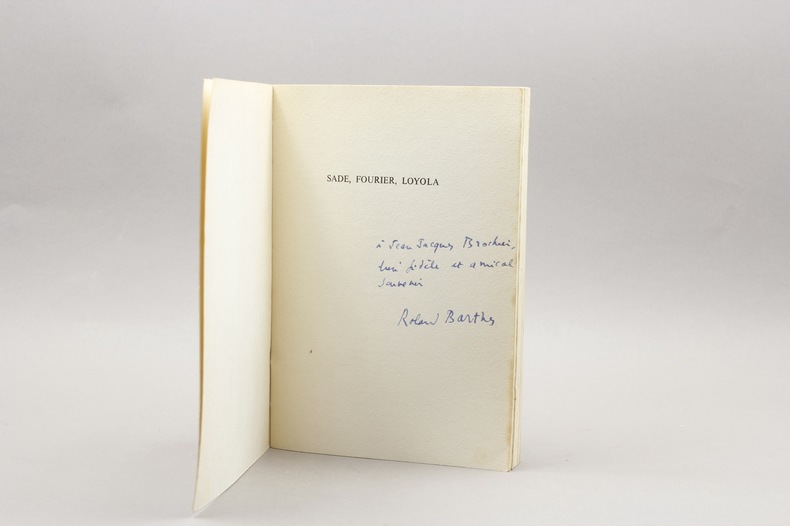 SADE, FOURIER, LOYOLA
à Jean Jacques Brochier,
fidèle et amical
souvenir
Roland Barthes